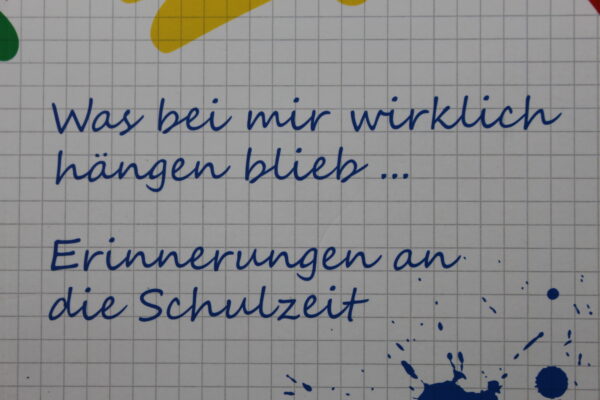 Was bei mir wirklich
hängen blieb ...
Erinnerungen an
die Schulzeit